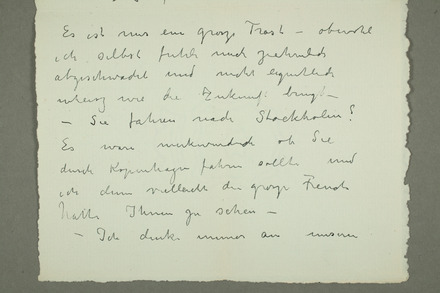 Es ist mir ein grosse Trost – obwohl
ich selbst fühle mich ziemlich
abgeschwächt und nicht eigentlich
wie die Zukunft bringt –
– Sie fahren nach Stockholm?
Es wäre merkwürdig ob Sie
durch Kopenhagen fahren sollte und
ich dann vielleicht die grosse Freude
hätte Ihnen zu sehen –
– Ich denke immer an unsere